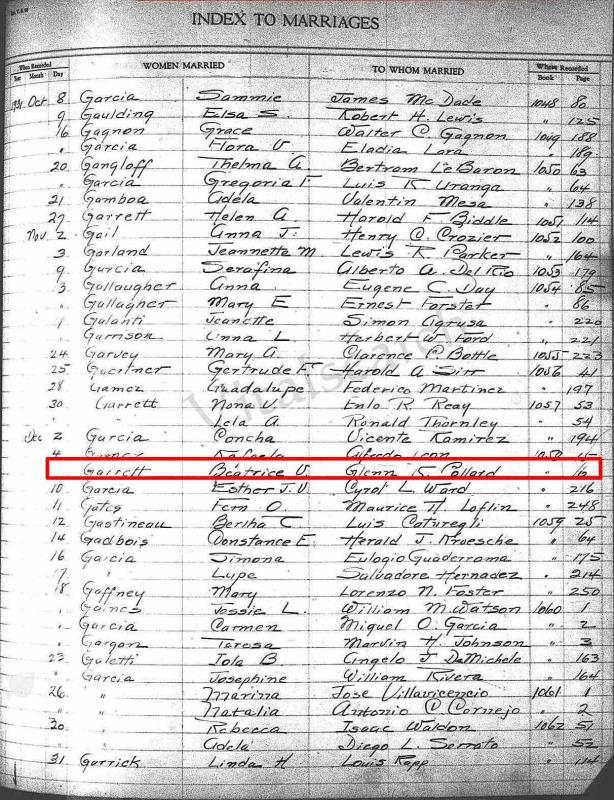 INDEX TO MARRIAGES
When Recorded WOMEN MARRIED TO WHOM MARRIED Where Recorded
Year Month Day Book Page
1931 Oct 8 Garcia Sammie James Mc Dade 1048 80
9 Gaulding Elsa S. Robert H. Lewis " 125
16 Gagnon Grace Walter C. Gagnon 1049 188
" Garcia Flora V. Eladia Lara " 189
20 Gangloff Thelma A. Bertram Le Baron 1050 63
" Garcia Gregoria F Luis R Uranga " 64
21 Gamboa Adela Valentin Mesa " 138
27 Garrett Helen A. Harold F Biddle 1051 114
Nov 2 Gail Anna J. Henry C. Crozier 1052 100
3 Garland Jeannette M Lewis R. Parker " 164
9 Garcia Serafina Alberto A. Del Rio 1053 179
3 Gallaugher Anna Eugene C. Day 1054 85
" Gallagher Mary E Ernest Forster 86
" Galanti Jeanette Simon Agrusa " 220
" Garrison Anna L. Herbert W. Ford " 221
24 Garvey Mary A. Clarence C Bottle 1055 223
25 Gaertner Gertrude F Harold A Sirr 1056 41
28 Gamez Guadalupe Federico Martinez " 197
30 Garrett Nona V. Enlo R. Reay 1057 53
" Lela A. Ronald Thornley " 54
Dec 2 Garcia Concha Vicente Ramirez " 194
4 Rafaela Alfredo Leon 1058 15
Garrett Beatrice V Glenn K. Pollard " 16
10 Garcia Esther J.V. Cyrol L. Ward " 216
11 Gates Fern O. Maurice H. Loflin " 248
12 Gastineau Bertha C. Luis Caturegli 1059 25
14 Gadbois Constance E. Herald J. Kraesche " 64
16 Garcia Simona Eulogio Guaderrama " 175
17 " Lupe Salvadore Hernadez " 214
18 Gaffney Mary Lorenzo N. Foster " 250
" Gaines Jessie L. William M. Watson 1060 1
" Garcia Carmen Miguel O. Garcia " 2
" Gargan Teresa Marvin H. Johnson " 3
23 Galetti Iola B Angelo J DeMichele " 163
" Garcia Josephine William Rivera " 164
26 " Marina Jose Villavicencio 1061 1
" " Natalia Antonio C Cornejo " 2
30 " Rebecca Isaac Waldon 1062 51
" " Adela Diego L. Serrato " 52
31 Garrick Linda H Louis Rapp " 114